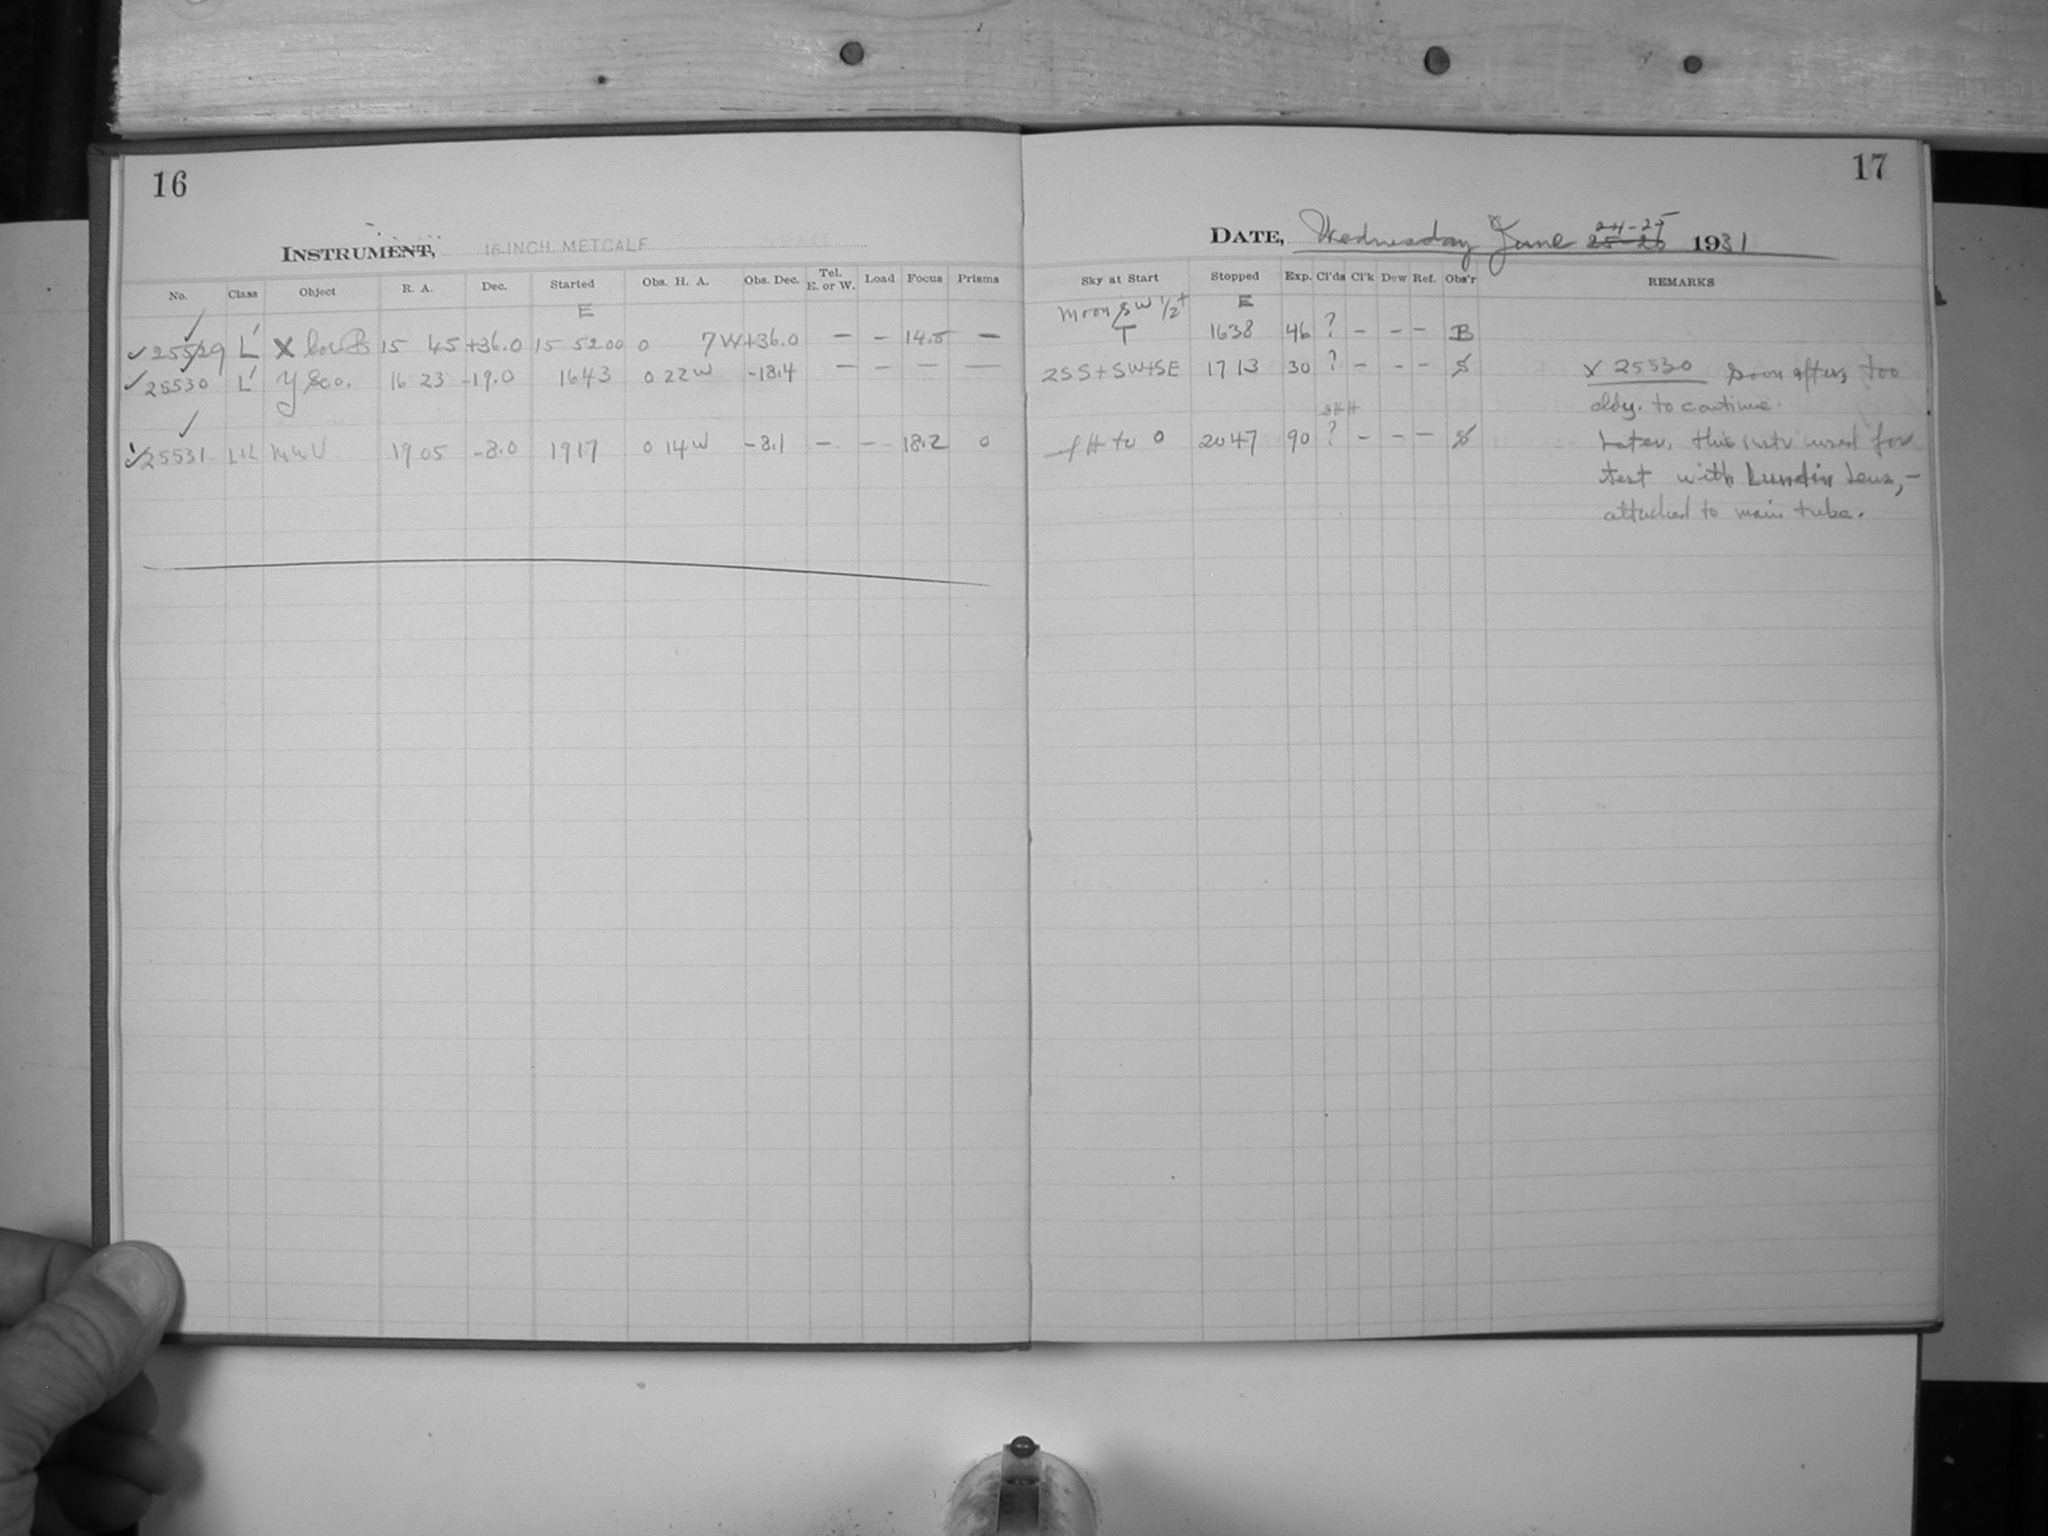 16
INSTRUMENT, 16 INCH METCALF
No. Class Object R. A. Dec. Started Obs. H. A. Obs. Dec. Tel. E. or W. Load Focus Prisms
E
25529 L' X CorB 15 45 +36.0 15 52 00 0 7W +36.0 — – 14.5 —
25530 L' Y Sco. 16 23 -19.0 1643 0 22 W -18.4 — – — —
25531 L+L 19 05 -8.0 1917 0 14 W -8.1 – – 18.2 0
17
DATE, Wednesday June 24-25 25-26 1931
Sky at Start Stopped Exp. Cl'ds Cl'k Dew Ref. Obs'r REMARKS
Moon SW 1/2+ E
T 1638 46 ? – – – B
2SS+SW+SE 1713 30 ? – – – S x 25530 Soon after, too
cldy. to continue.
1H to 0 2047 90 ? – – – S Later, this instr used for
test with Lundin Lens,–
attached to main tube.